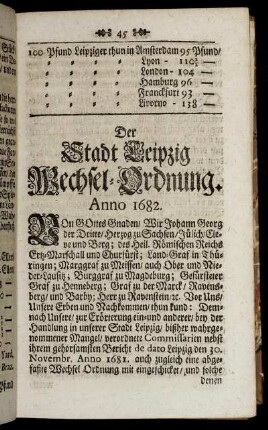 45
100 Pfund Leipziger thun in Amsterdam 95 Pfund/
" " " " Lyon - 110½ —
" " " " London - 104 —
" " " " Hamburg 96 —
" " " " Franckfurt 93 —
" " " " Livorno - 138 —
Der
Stadt Leipzig
Wechsel-Ordnung.
Anno 1682.
VOn GOttes Gnaden/ Wir Johann Georg
der Dritte/ Hertzog zu Sachsen/ Jülich/ Cle-
ve und Berg/ des Heil. Römischen Reichs
Ertz-Marschall und Churfürst/ Land-Graf in Thü-
ringen/ Marggraf zu Meissen/ auch Ober und Nie-
der-Laußitz/ Burggraf zu Magdeburg/ Gefürsteter
Graf zu Henneberg/ Graf zu der Marck/ Ravens-
berg/ und Barby/ Herr zu Ravenstein ꝛc. Vor Uns/
Unsere Erben und Nachkommen/ thun kund: Dem-
nach Unsere/ zur Erörterung ein-und anderer/ bey der
Handlung in unserer Stadt Leipzig/ bißher wahrge-
nommener Mängel/ verordnete Commissarien nebst
ihrem gehorsamsten Bericht de dato Leipzig den 30.
Novembr. Anno 1681. auch zugleich eine abge-
faßte Wechsel Ordnung mit eingeschicket/ und solche
denen